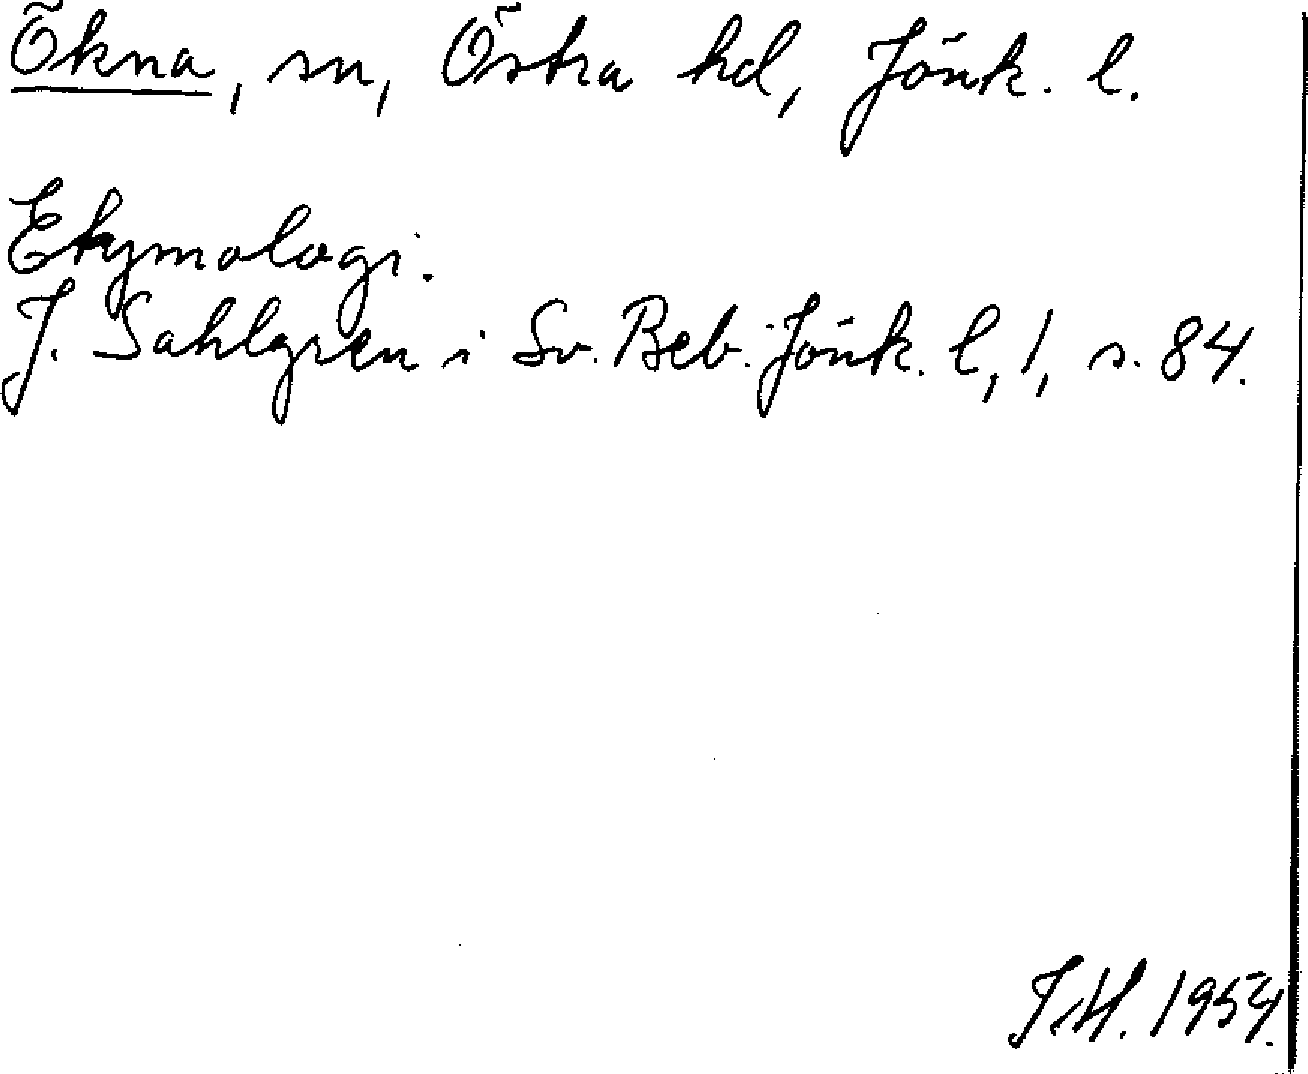 Ökna, sn, Östra hd, Jönk. l.
Etymologi.
J. Sahlgren i Sv. Beb. Jönk. l, 1, s. 84.
J.H. 1954.